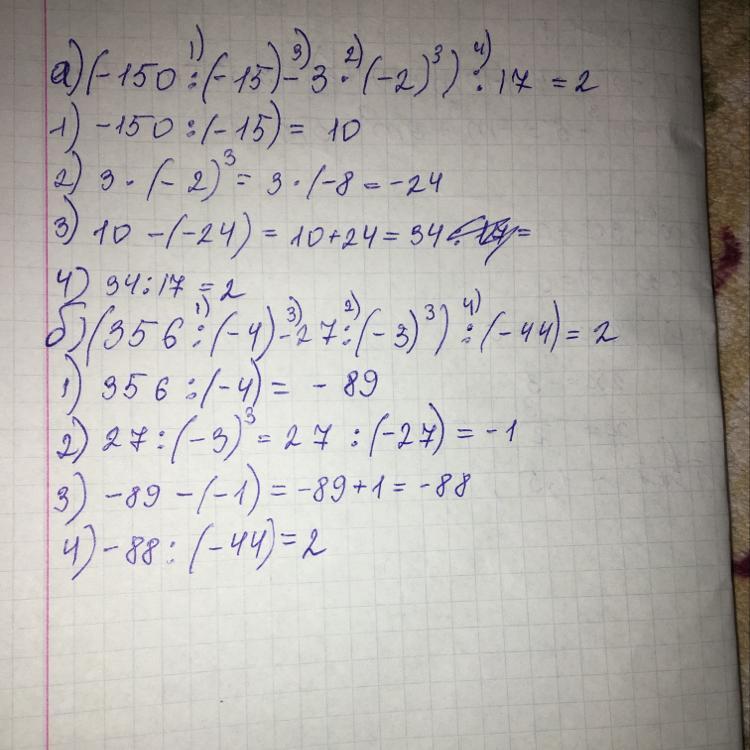 а) (-150 : (-15) - 3 · (-2)³) : 17 = 2
1) -150 : (-15) = 10
2) 3 · (-2)³ = 3 · (-8 = -24
3) 10 - (-24) = 10 + 24 = 34 =
4) 34 : 17 = 2
б) (356 : (-4) - 27 : (-3)³) : (-44) = 2
1) 356 : (-4) = - 89
2) 27 : (-3)³ = 27 : (-27) = -1
3) -89 - (-1) = -89 + 1 = -88
4) -88 : (-44) = 2